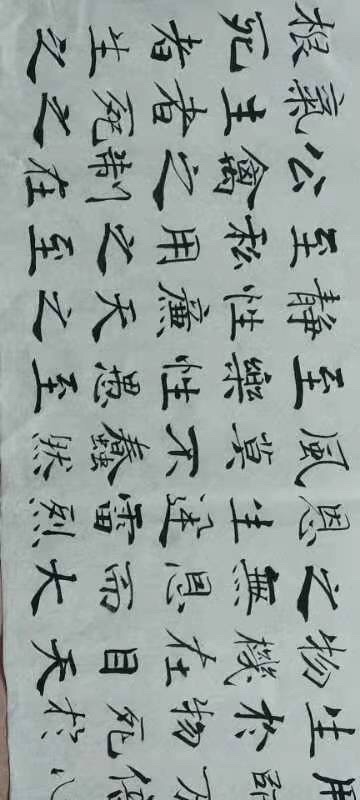 用師万倍心
生於物死於
物機在目天
之無恩而大
恩生迅雷烈
風莫不蠢然
至樂性愚至
靜性廉天之
至私用之至
公禽之制在
氣生者死之
根死者生之